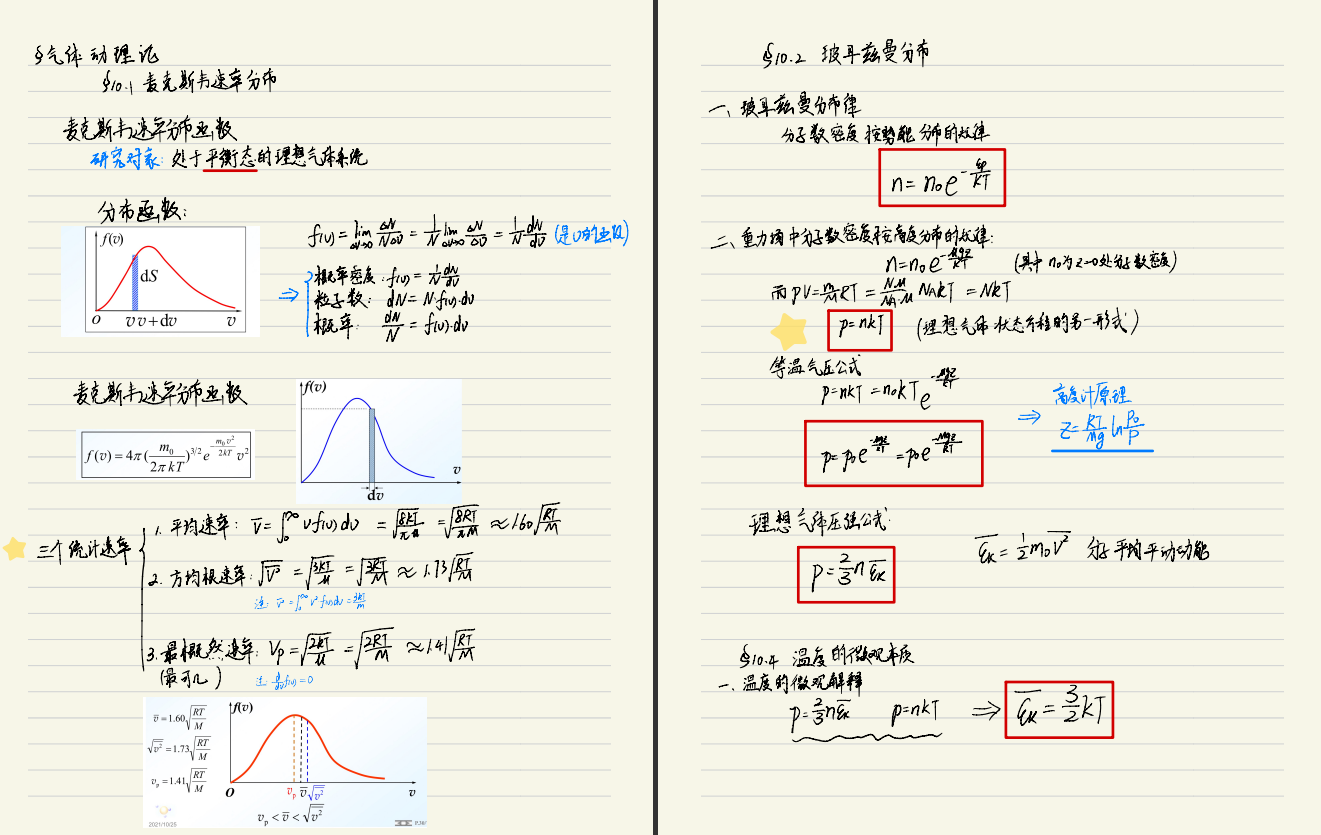 §气体动理论
§10.1 麦克斯韦速率分布
麦克斯韦速率分布函数
研究对象: 处于平衡态的理想气体系统
分布函数:
f(v)
dS
O v v+dv v
f(v) = lim Δv→0 ΔN/NΔv = 1/N lim Δv→0 ΔN/Δv = 1/N dN/dv (是v的函数)
⇒ 概率密度: f(v) = 1/N dN/dv
粒子数: dN = N·f(v)·dv
概率: dN/N = f(v)·dv
麦克斯韦速率分布函数
f(v) = 4π(m₀/2πkT)^3/2 e^-m₀v²/2kT v²
f(v)
v
dv
三个统计速率
1. 平均速率: v̄ = ∫₀^∞ v f(v) dv = √8kT/πμ = √8RT/πM ≈ 1.60√RT/M
2. 方均根速率: √v̄² = √3kT/μ = √3RT/M ≈ 1.73√RT/M
注: v̄² = ∫₀^∞ v² f(v) dv = 3kT/m
3. 最概然速率: Vp = √2kT/μ = √2RT/M ≈ 1.41√RT/M
(最可几)
注: d/dv f(v) = 0
v̄ = 1.60√RT/M
√v̄² = 1.73√RT/M
vₚ = 1.41√RT/M
f(v)
O vₚ v̄ √v̄² v
vₚ < v̄ < √v̄²
2021/10/25
§10.2 玻耳兹曼分布
一、玻耳兹曼分布律
分子数密度按势能分布的规律
n = n₀e^-εp/kT
二、重力场中分子数密度按高度分布的规律:
n = n₀e^-mgz/kT (其中 n₀为 z=0处分子数密度)
而 pV = m/M RT = N·M/NA·M NAkT = NkT
p = nkT (理想气体状态方程的另一形式)
等温气压公式
p = nkT = n₀kT e^-mgz/kT
p = p₀e^-mgz/kT = p₀e^-Mgz/RT
⇒ 高度计原理
Z = RT/Mg ln p₀/p
理想气体压强公式:
p = 2/3 n ε̄k
ε̄k = 1/2 m₀v̄² 分子平均平动动能
§10.4 温度的微观本质
一、温度的微观解释
p = 2/3 n ε̄k p = nkT ⇒ ε̄k = 3/2 kT